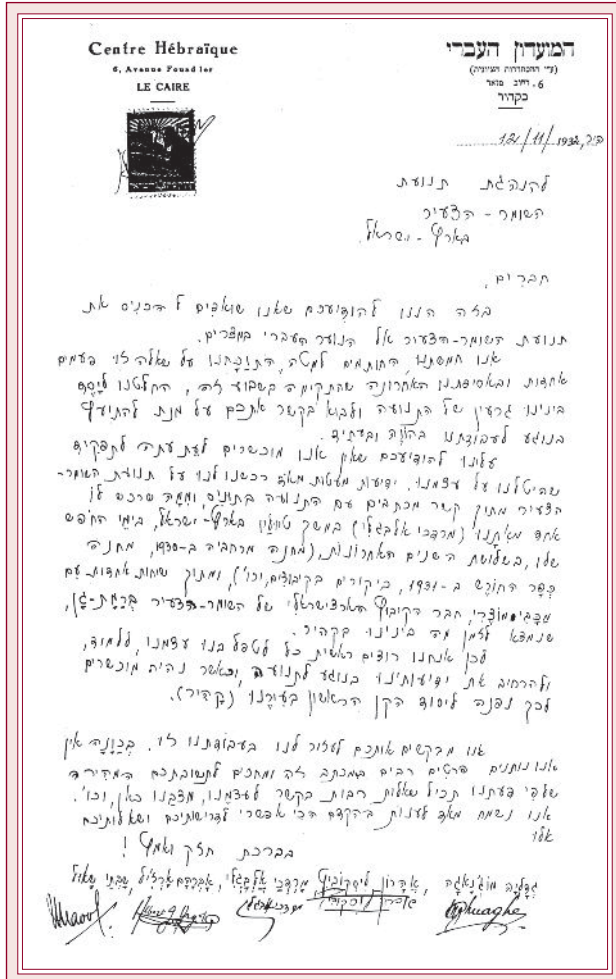 Centre Hébraïque
6, Avenue Fouad Ier
LE CAIRE
המועדון העברי
(ע״י ההסתדרות הציונית)
6, רחוב פואד
בקהיר
12/11/1932
להנהגת תנועת
השומר-הצעיר
בארץ-ישראל.
חברים,
בזה הננו להודיעכם שאנו שואפים להכניס את
תנועת השומר-הצעיר אל הנוער העברי במצרים.
אנו חמשתנו, החותמים למטה, התוכחנו על שאלה זו פעמים
אחדות ובאסיפתנו האחרונה שהתקימה בשבוע זה, החלטנו ליסד
בינינו גרעין של התנועה ולבוא בקשר אתכם על מנת להתיעץ
בנוגע לעבודתנו בהווה ובעתיד.
עלינו להודיעכם שאין אנו מוכשרים לעת עתה לתפקיד
שהיטלנו על עצמנו. ידיעות מעטות מאד רכשנו לנו על תנועת השומר-
הצעיר מתוך קשר מכתבים עם התנועה בתוניס, וממה שרכש לו
אחד מאתנו (מרדכי אלבגלי) במשך טיולין בארץ-ישראל, בימי החופש
שלו, בשלושת השנים האחרונות, (מחנה מרחביה ב-1930, מחנה
כפר החורש ב-1931, ביקורים בקיבוצים, וכו'), ומתוך שיחות אחדות עם
חבר הקיבוץ הארצישראלי של השומר-הצעיר ברמת-גן,
שנמצא לזמן מה בינינו בקהיר.
לכן אנחנו רוצים ראשית כל לטפל בנו עצמנו, ללמוד,
ולהרחיב את ידיעותינו בנוגע לתנועה, וכאשר נהיה מוכשרים
לכך נפנה ליסוד הקן הראשון בעירנו (קהיר).
אנו מבקשים אתכם לעזור לנו בעבודתנו זו. בכוונה אין
אנו נותנים פרטים רבים במכתב זה ומחכים לתשובתכם המהירה
שלפי דעתנו תכיל שאלות רבות בקשר לעצמנו, מצבנו כאן, וכו'.
אנו נשמח מאד לענות בהקדם הכי אפשרי לדרישותיכם ושאלותיכם
אלו
בברכת חזק ואמץ!
גדליה, אהרון, מרדכי אלבגלי, אברהם, שבתי שאול